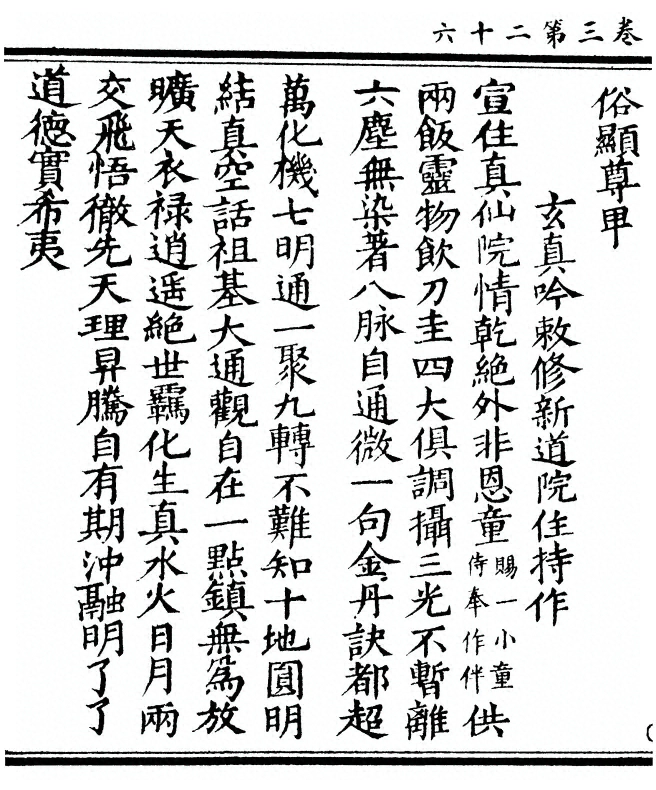 卷三第二十六
俗顯尊甲
玄真吟敕修新道院住持作
宣住真仙院情乾絶外非恩童賜一小童侍奉作伴供
兩飯靈物飲刀圭四大俱調攝三光不暫離
六塵無染著八脉自通微一句金丹訣都超
萬化機七明通一聚九轉不難知十地圓明
結真空話祖基大通觀自在一點鎮無為放
曠天衣禄逍遥絶世羈化生真水火日月兩
交飛悟徹先天理昇騰自有期沖融明了了
道德實希夷